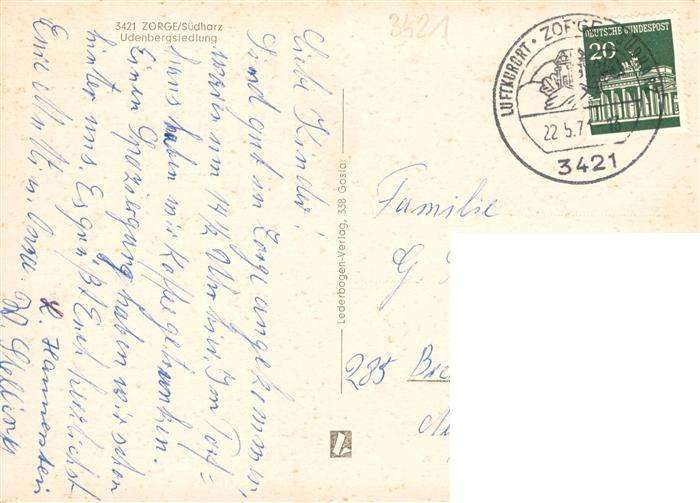 3421 ZORGE/Südharz
Udenbergsiedlung
3421
Liebe Kinder!
Sind gut in Zorge angekommen,
waren um 14½ Uhr hier. Im Torf=
haus haben wir Kaffee getrunken.
Einen Spaziergang haben wir schon
hinter uns. Es grüßt Euch herzlichst
Eure Mutti u. Oma.
H. Hannerstein
Lederbogen-Verlag, 338 Goslar
LUFTKURORT · ZORGE
22 5.7
3421
DEUTSCHE BUNDESPOST
20
Familie
G.
285 Bre